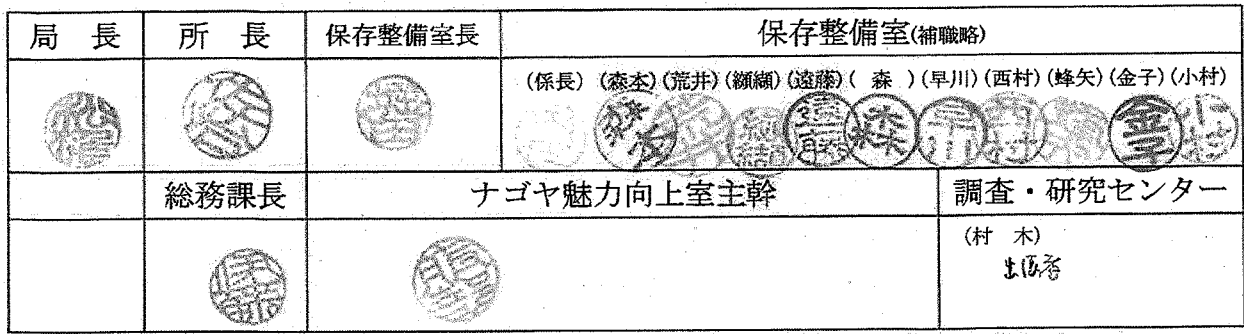 局 長 所 長 保存整備室長 保存整備室(補職略)
(係長) (森本) (荒井) (纐纈) (遠藤) ( 森 ) (早川) (西村) (蜂矢) (金子) (小村)
森本 纐纈 遠藤 森 早川 西村 金子 小村
総務課長 ナゴヤ魅力向上室主幹 調査・研究センター
(村 木)